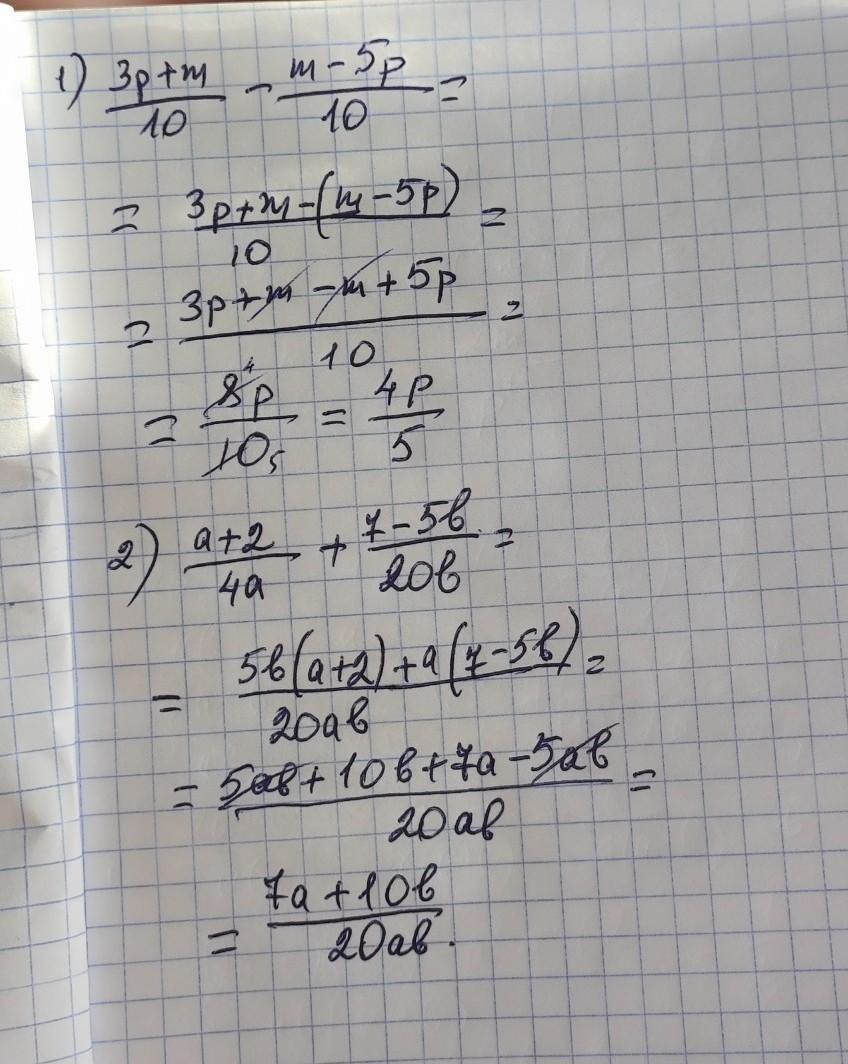 1) (3p+m)/10 - (m-5p)/10 =
= (3p+m-(m-5p))/10 =
= (3p+m-m+5p)/10 =
= 8p/10 = 4p/5
4 5
2) (a+2)/4a + (7-5в)/20в =
= (5в(a+2)+a(7-5в))/20aв =
= (5aв+10в+7a-5aв)/20aв =
= (7a+10в)/20aв.